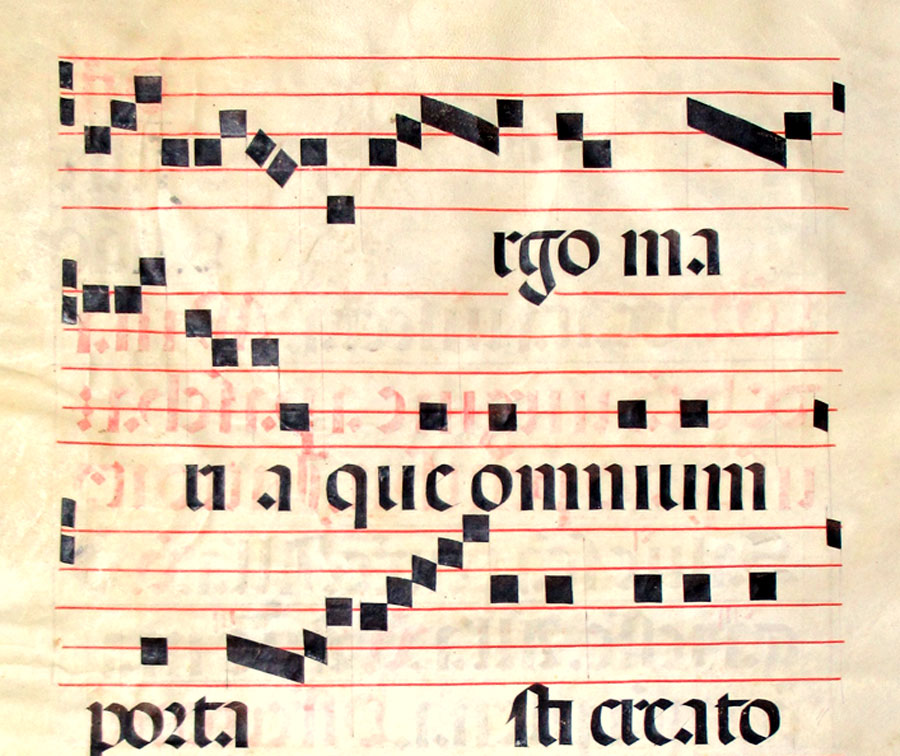 rgo ma
ri a que omnium
porta sti creato